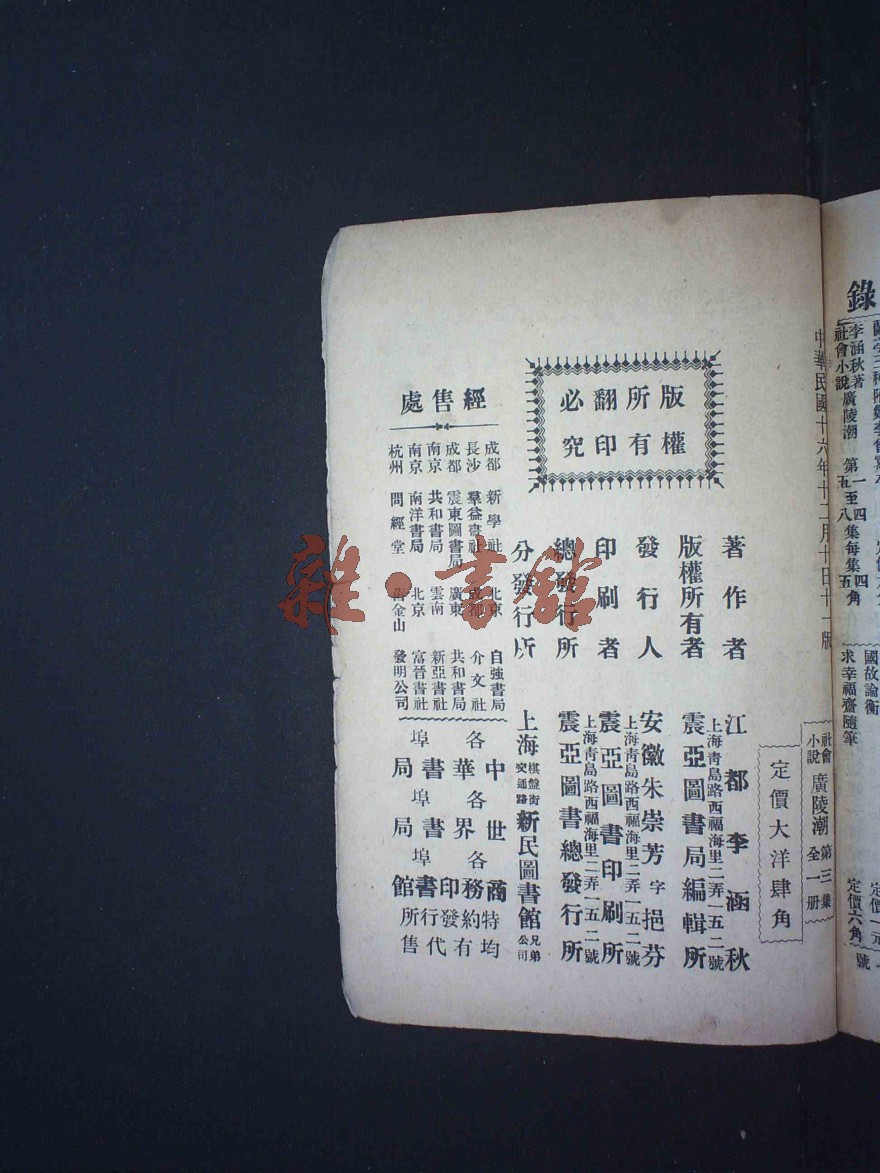 錄
李涵秋著
社會小說
廣陵潮
第一至四集每集四角
五八五
國故論衡
求幸福齋隨筆
定價一元
定價六角
號
中華民國十六年十二月十日十一版
社會小說
廣陵潮
第三集
全一册
定價大洋肆角
版權所有
翻印必究
著作者
江都李涵秋
版權所有者
上海靑島路西福海里二弄一五二號
震亞圖書局編輯所
發行人
安徽朱崇芳字挹芬
印刷者
上海靑島路西福海里二弄一五二號
震亞圖書印刷所
總發行所
上海靑島路西福海里二弄一五二號
震亞圖書總發行所
分發行所
上海棋盤街交通路新民圖書館兄弟公司
經售處
成都 新學社
北京 自強書局
長沙 羣益書社
成都 介文社
成都 震東圖書局
廣東 共和書局
南京 共和書局
雲南 新亞書社
南京 南洋書局
北京 富晉書社
杭州 問經堂
舊金山 發明公司
中世商特均
各華各界各務約有
書書印發代
埠埠埠書行售
局局館所
雜·書館